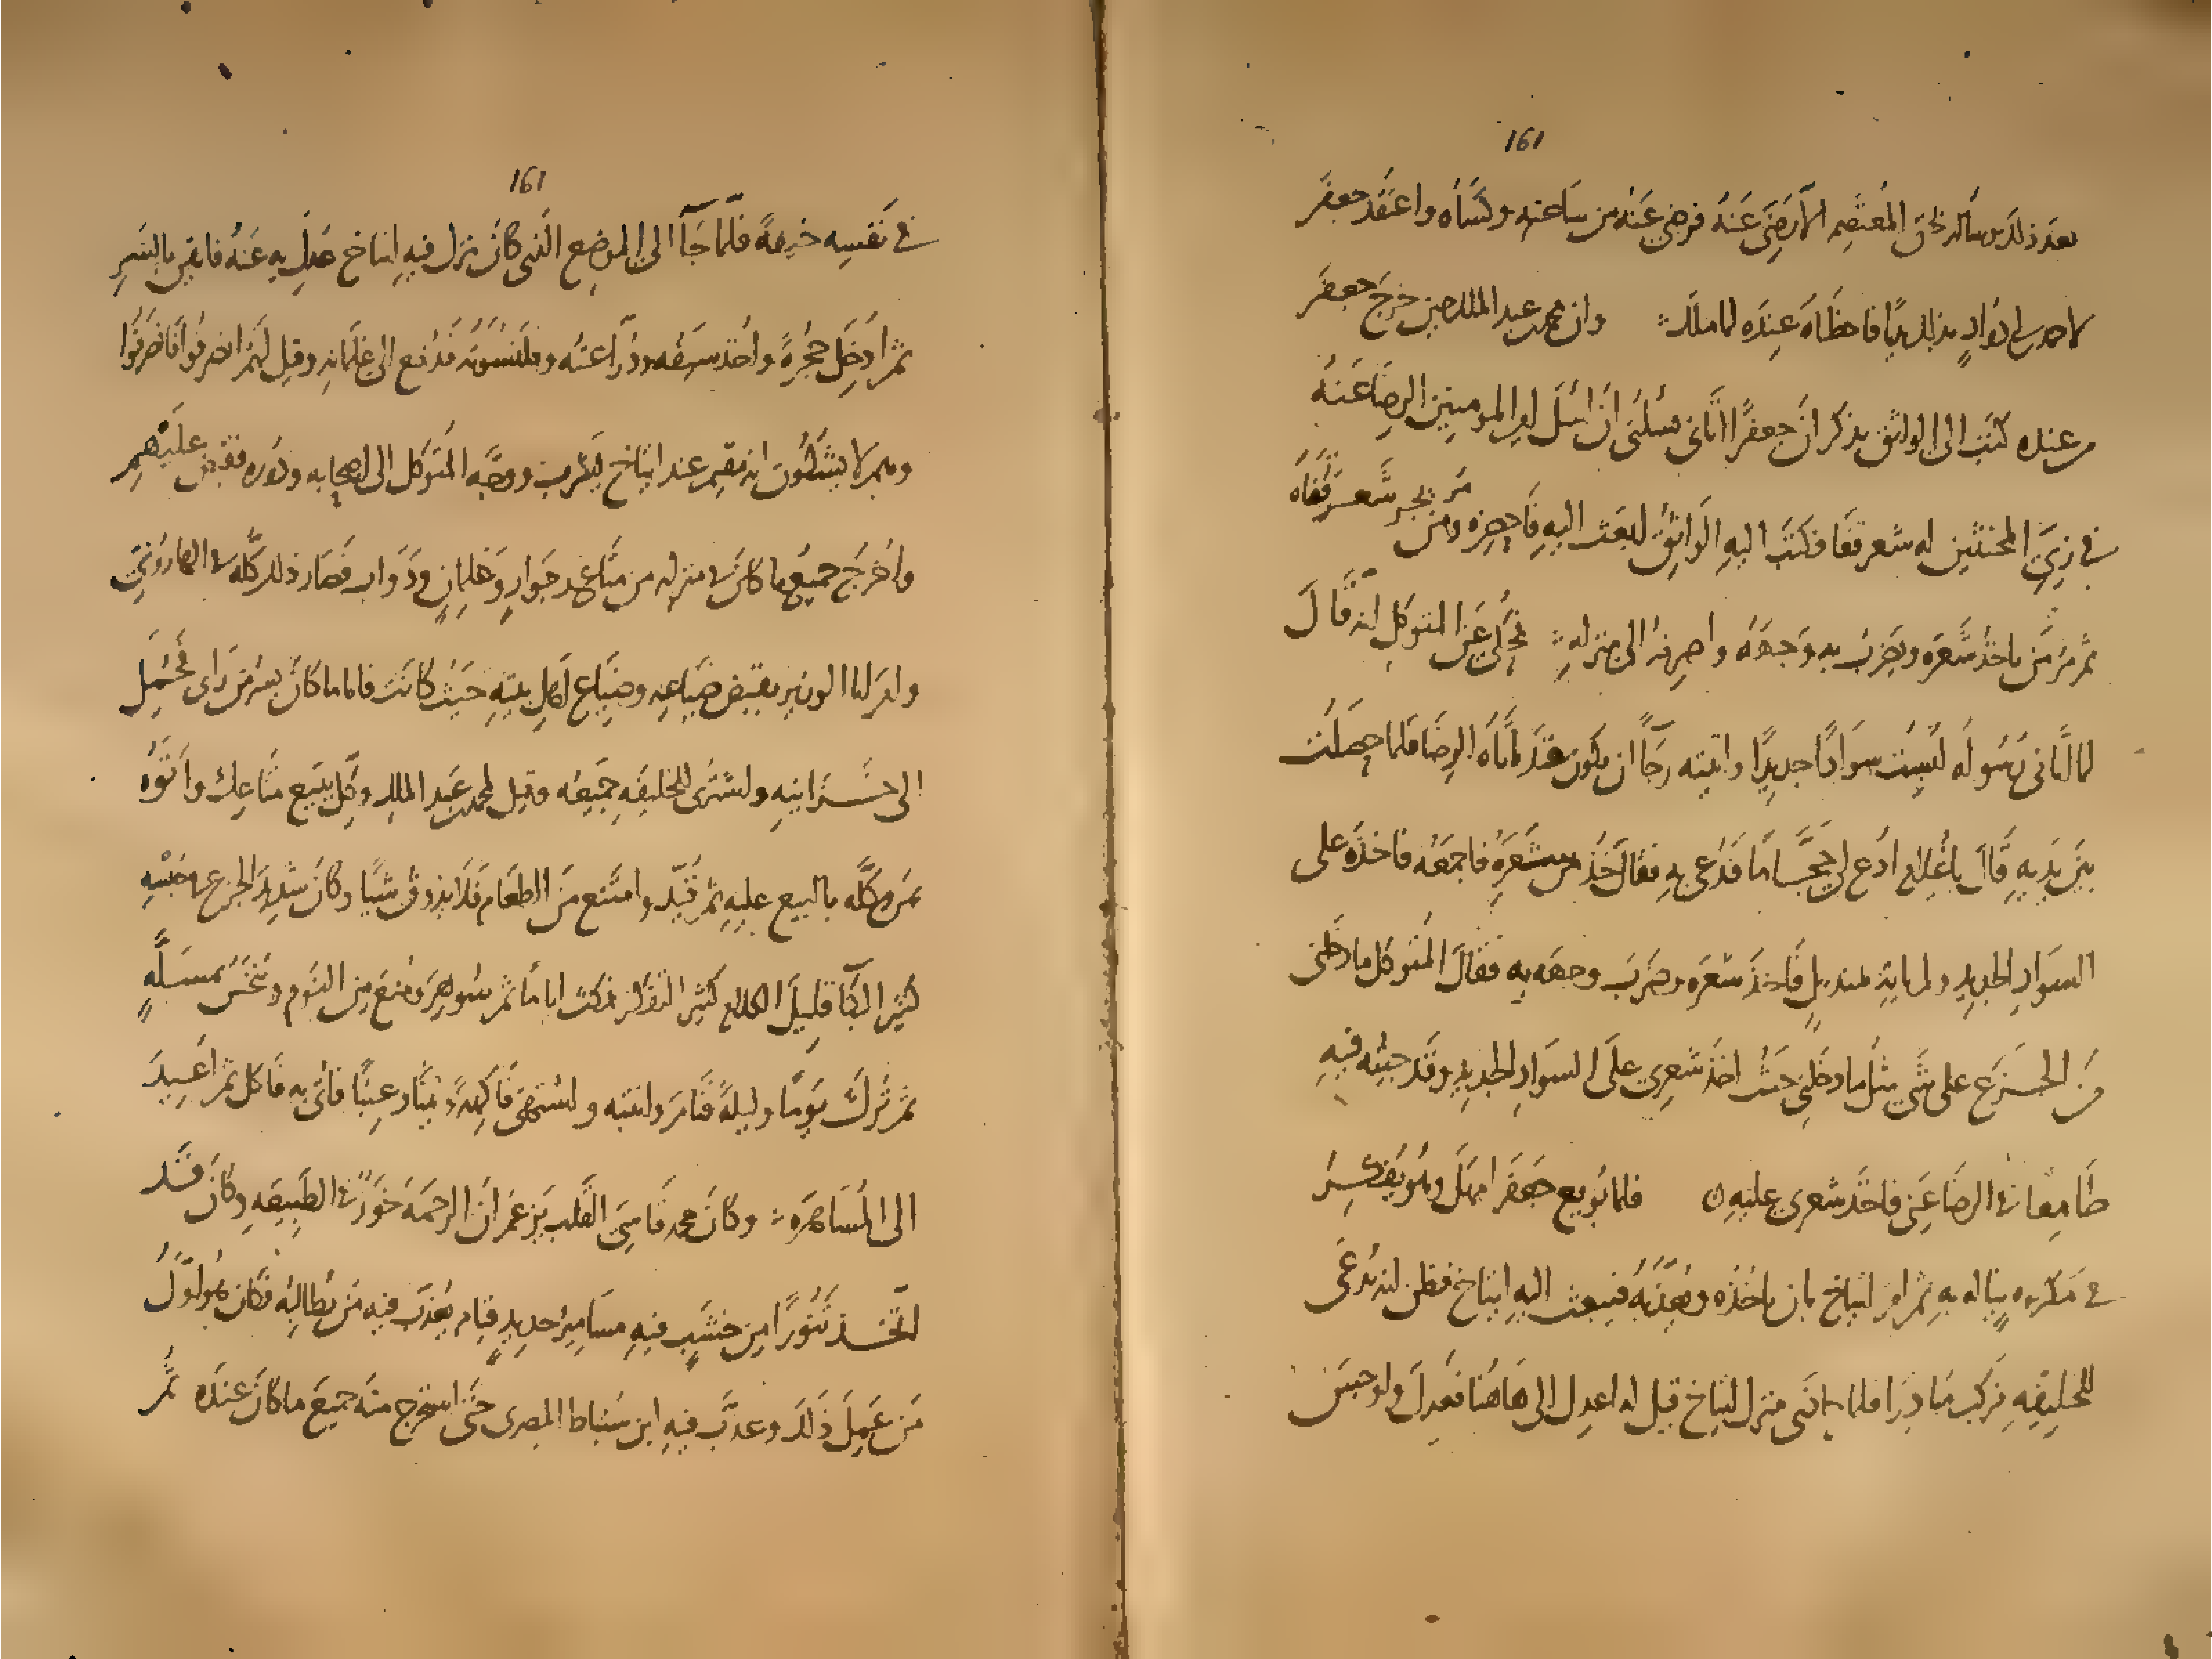 ١٦١
بعد ذلك يساله بحق المعتصم الا رضى عنه فرضى عنه من ساعته وكساه واعتقد جعفر
لاحمد بن دواد بذلك يدا فاحظاه عنده لما ملك وان محمد بن عبد الملك حين خرج جعفر
من عنده كتب الى الواثق يذكر ان جعفرا اتانى يسلنى ان اسل امير المومنين الرضا عنه
فى زى المخنثين له شعر قفا فكتب اليه الواثق ابعث اليه فاحضره ومن من يجز شعر قفاه
ثم مر من ياخذ شعره ويضرب به وجهه واصرفه الى منزله فحكى عن المتوكل انه قال
لما اتانى رسوله لبست سوادا جديدا واتيته رجآ ان يكون قد اتاه الرضا فلما حصلت
بين يديه قال يا غلام ادع لى حجاما فدعى به فقال خذ من شعره فاجمعه فاخذه على
السواد الجديد ولم ياته بمنديل فاخذ شعره وضرب وجهه به فقال المتوكل ما دخلنى
من الجزع على شى مثل ما دخلنى حيث اخذ شعرى على السواد الجديد وقد جيته فيه
طامعا فى الرضا عنى فاخذ شعرى عليه ن فلما بويع جعفر امهل وهو يفكر
فى مكروه يناله به ثم امر ايتاخ بان ياخذه ويعذبه فبعث اليه ايتاخ فظن انه يدعى
للخليفه فركب مبادرا فلما اتى منزل ايتاخ قيل له اعدل الى هاهنا فعدل واوجس
١٦١
فى نفسه خيفة فلما جآ الى الموضع الذى كان ينزل فيه ايتاخ عدل به عنه فايقن بالشر
ثم ادخل حجرة واخذ سيفه ودراعته وقلنسوته فدفع الى غلمانه وقيل لهم انصرفوا فانصرفوا
وهم لا يشكون انه مقيم عند ايتاخ ليشرب ووجه المتوكل الى اصحابه ودوره فقبض عليهم
واخرج جميع ما كان فى منزله من متاع وجوار وغلمان ودواب فصار ذلك كله فى الهارونى
وامر الوزير بقبض ضياعه وضياع اهل بيته حيث كانت فاما ما كان بسر من راى فحمل
الى خزاينه واشترى للخليفه جميعه وقيل لمحمد بن عبد الملك وكل ببيع متاعك واتوه
بمن وكله بالبيع عليه ثم قيد وامتنع من الطعام فلا يذوق شيا وكان شديد الجزع فى حبسه
كثير البكآ قليل الكلام كثير التفكر فمكث اياما ثم سوهر ومنع من النوم ونخس بمسلة
ثم ترك يوما وليلة فنام وانتبه واشتهى فاكهة وتينا وعنبا فاتى به فاكل ثم اعيد
الى المساهره وكان محمد قاسى القلب يزعم ان الرحمة خور فى الطبيعه وكان قد
اتخذ تنورا من خشب فيه مسامير حديد قيام يعذب فيه من يطالبه فكان هو اول
من عمل ذلك وعذب فيه ابن سنباط المصرى حتى استخرج منه جميع ما كان عنده ثم